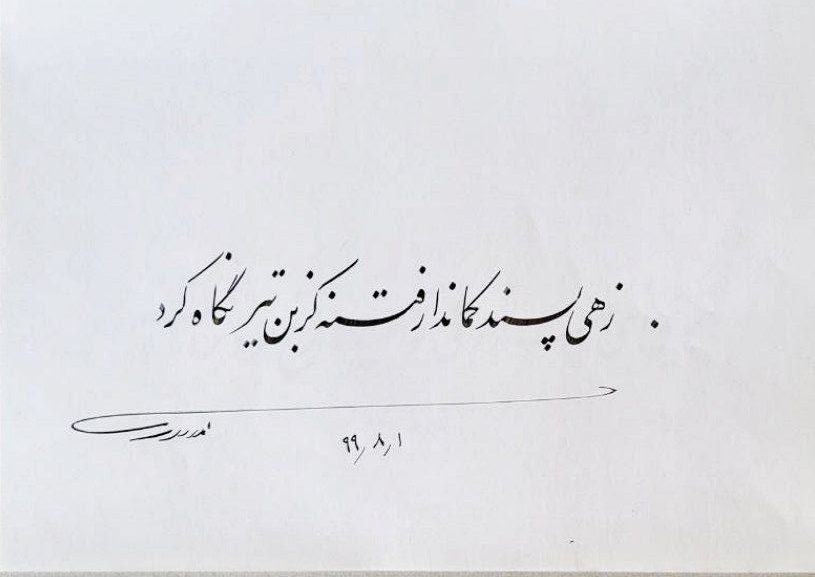 زهی پسند کماندار فتنه کز بن تیر نگاه کرد
۹۹٫۸٫۱